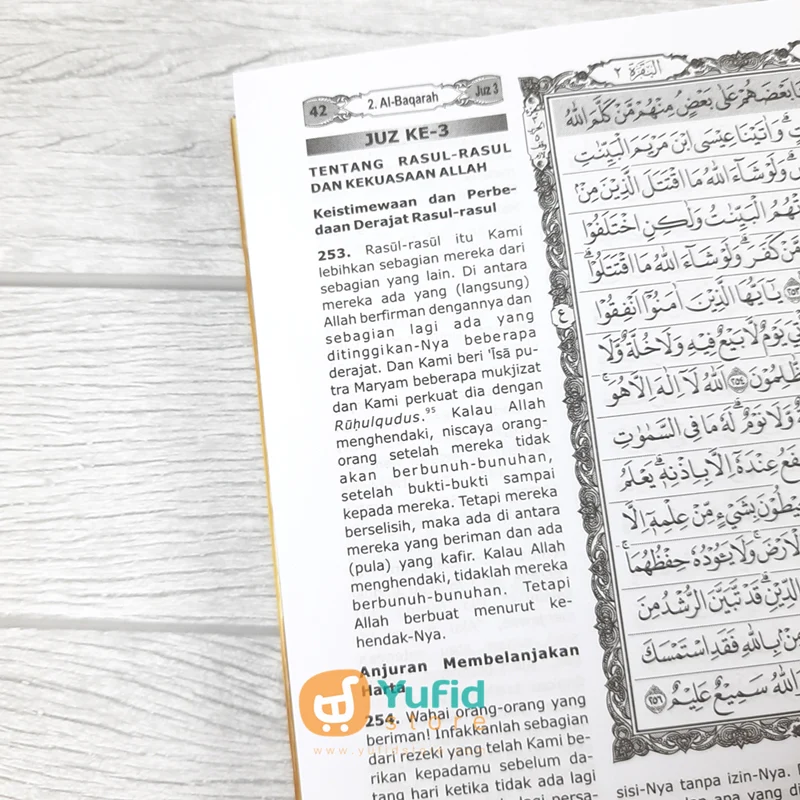 42
2. Al-Baqarah
Juz 3
JUZ KE-3
TENTANG RASUL-RASUL
DAN KEKUASAAN ALLAH
Keistimewaan dan Perbe-
daan Derajat Rasul-rasul
253. Rasūl-rasūl itu Kami
lebihkan sebagian mereka dari
sebagian yang lain. Di antara
mereka ada yang (langsung)
Allah berfirman dengannya dan
sebagian lagi ada yang
ditinggikan-Nya beberapa
derajat. Dan Kami beri 'Īsā pu-
tra Maryam beberapa mukjizat
dan Kami perkuat dia dengan
Rūḥulqudus.⁹⁵ Kalau Allah
menghendaki, niscaya orang-
orang setelah mereka tidak
akan berbunuh-bunuhan,
setelah bukti-bukti sampai
kepada mereka. Tetapi mereka
berselisih, maka ada di antara
mereka yang beriman dan ada
(pula) yang kafir. Kalau Allah
menghendaki, tidaklah mereka
berbunuh-bunuhan. Tetapi
Allah berbuat menurut ke-
hendak-Nya.
Anjuran Membelanjakan
Harta
254. Wahai orang-orang yang
beriman! Infakkanlah sebagian
dari rezeki yang telah Kami be-
rikan kepadamu sebelum da-
tang hari ketika tidak ada lagi
البقرة ٢
بَعْضَهُمْ عَلٰى بَعْضٍ مِنْهُمْ مَّنْ كَلَّمَ اللّٰهُ
وَاٰتَيْنَا عِيْسَى ابْنَ مَرْيَمَ الْبَيِّنٰتِ
وَلَوْ شَاۤءَ اللّٰهُ مَا اقْتَتَلَ الَّذِيْنَ مِنْۢ
الْبَيِّنٰتُ وَلٰكِنِ اخْتَلَفُوْا
مَّنْ كَفَرَ ۗ وَلَوْ شَاۤءَ اللّٰهُ مَا اقْتَتَلُوْا
٢٥٣ يٰٓاَيُّهَا الَّذِيْنَ اٰمَنُوْٓا اَنْفِقُوْا
يَوْمٌ لَّا بَيْعٌ فِيْهِ وَلَا خُلَّةٌ وَّلَا
٢٥٤ اَللّٰهُ لَآ اِلٰهَ اِلَّا هُوَ
وَّلَا نَوْمٌ ۗ لَهٗ مَا فِى السَّمٰوٰتِ
عِنْدَهٗٓ اِلَّا بِاِذْنِهٖ ۗ يَعْلَمُ
بِشَيْءٍ مِّنْ عِلْمِهٖٓ اِلَّا
وَلَا يَـُٔوْدُهٗ حِفْظُهُمَا
الدِّيْنِ ۗ قَدْ تَّبَيَّنَ الرُّشْدُ مِنَ
بِاللّٰهِ فَقَدِ اسْتَمْسَكَ
اللّٰهُ سَمِيْعٌ عَلِيْمٌ ٢٥٦
ع
sisi-Nya tanpa izin-Nya.
Yufid
store